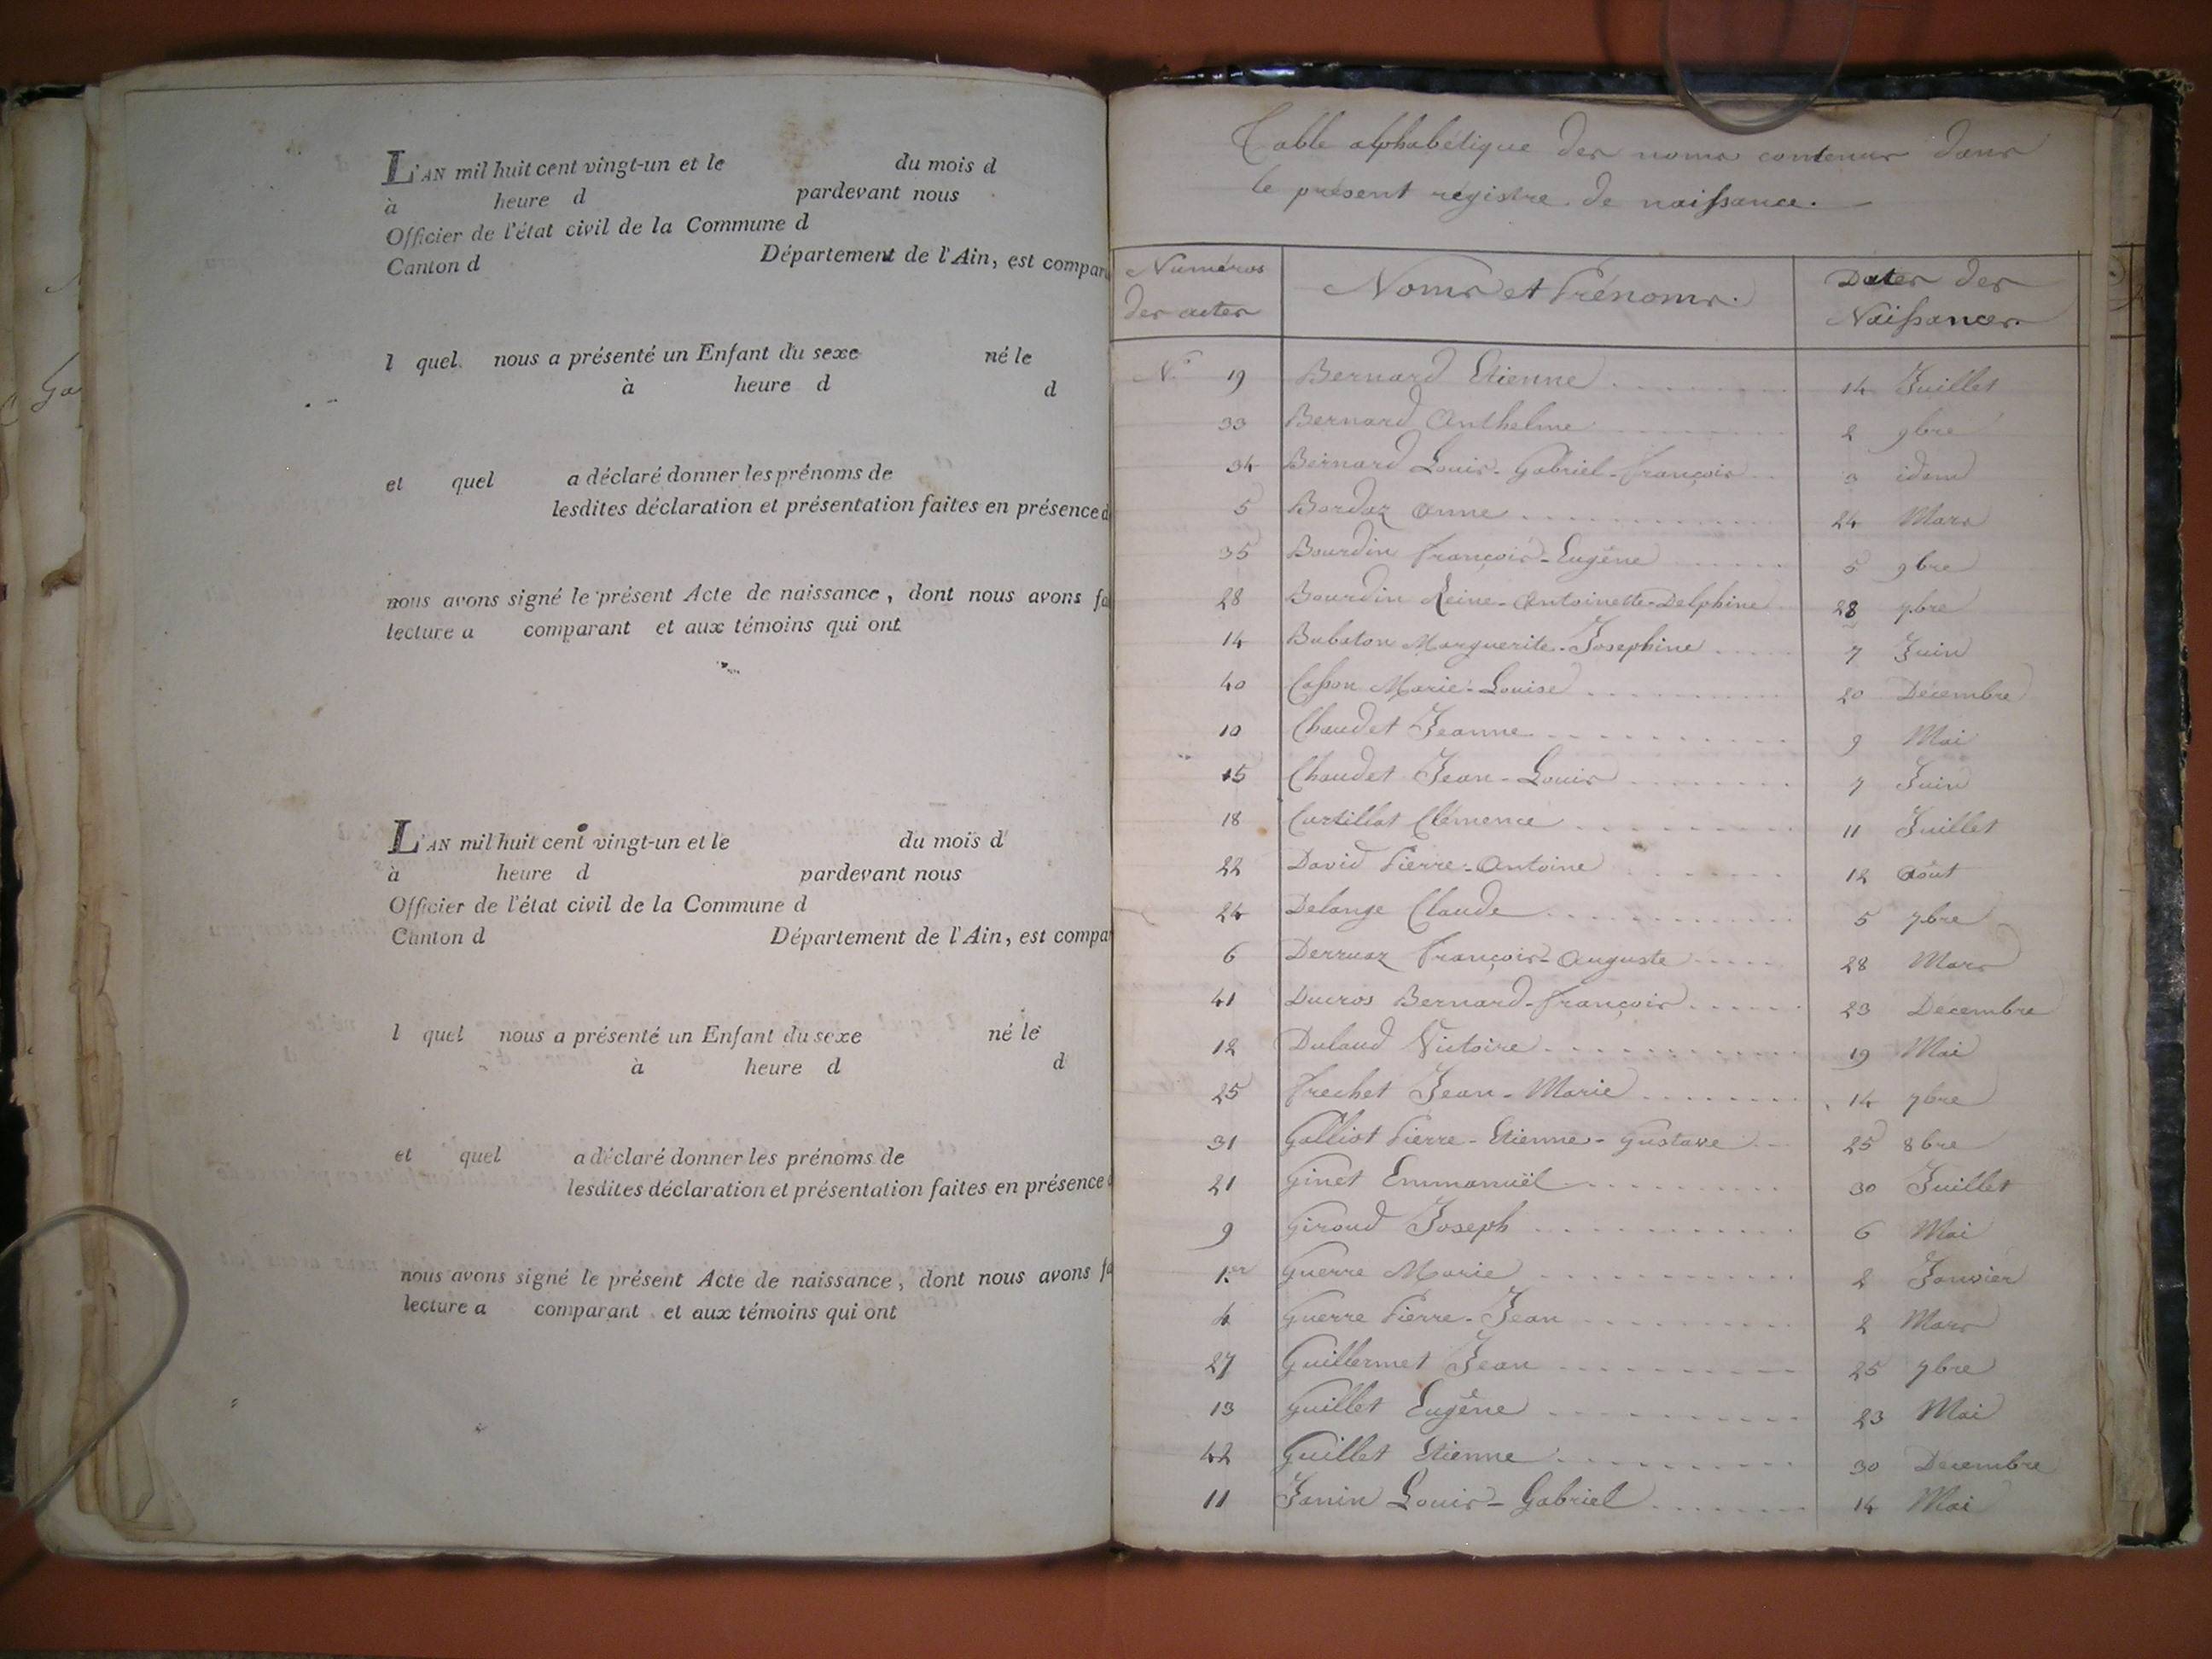 L'AN mil huit cent vingt-un et le du mois d
à heure d pardevant nous
Officier de l'état civil de la Commune d
Canton d Département de l'Ain, est compar
l quel nous a présenté un Enfant du sexe né le
à heure d d
et quel a déclaré donner les prénoms de
lesdites déclaration et présentation faites en présence d
nous avons signé le présent Acte de naissance, dont nous avons fa
lecture a comparant et aux témoins qui ont
L'AN mil huit cent vingt-un et le du mois d
à heure d pardevant nous
Officier de l'état civil de la Commune d
Canton d Département de l'Ain, est compa
l quel nous a présenté un Enfant du sexe né le
à heure d d
et quel a déclaré donner les prénoms de
lesdites déclaration et présentation faites en présence
nous avons signé le présent Acte de naissance, dont nous avons fa
lecture a comparant et aux témoins qui ont
Table alphabétique des noms contenus dans
le présent régistre de naissance.
Numéros des actes Noms et Prénoms. Dates des Naissances.
N° 19 Bernard Etienne 14 Juillet
33 Bernard Anthelme 2 9bre
34 Bernard Louis-Gabriel-François 3 idem
5 Bordaz Anne 24 Mars
35 Bourdin François-Eugène 5 9bre
28 Bourdin Reine-Antoinette-Delphine 28 7bre
14 Bubaton Marguerite-Josephine 7 Juin
40 Casson Marie-Louise 20 Décembre
10 Chaudet Jeanne 9 Mai
15 Chaudet Jean-Louis 7 Juin
18 Curtillat Clémence 11 Juillet
22 David Pierre-Antoine 12 Août
24 Delange Claude 5 7bre
6 Derruaz François-Auguste 28 Mars
41 Ducros Bernard-François 23 Décembre
12 Dulaud Victoire 19 Mai
25 Frechet Jean-Marie 14 7bre
31 Galliot Pierre-Etienne-Gustave 25 8bre
21 Ginet Emmanuël 30 Juillet
9 Giroud Joseph 6 Mai
1.er Guerre Marie 2 Janvier
4 Guerre Pierre-Jean 2 Mars
27 Guillermet Jean 25 7bre
13 Guillet Eugène 23 Mai
42 Guillet Etienne 30 Décembre
11 Janin Louis-Gabriel 14 Mai